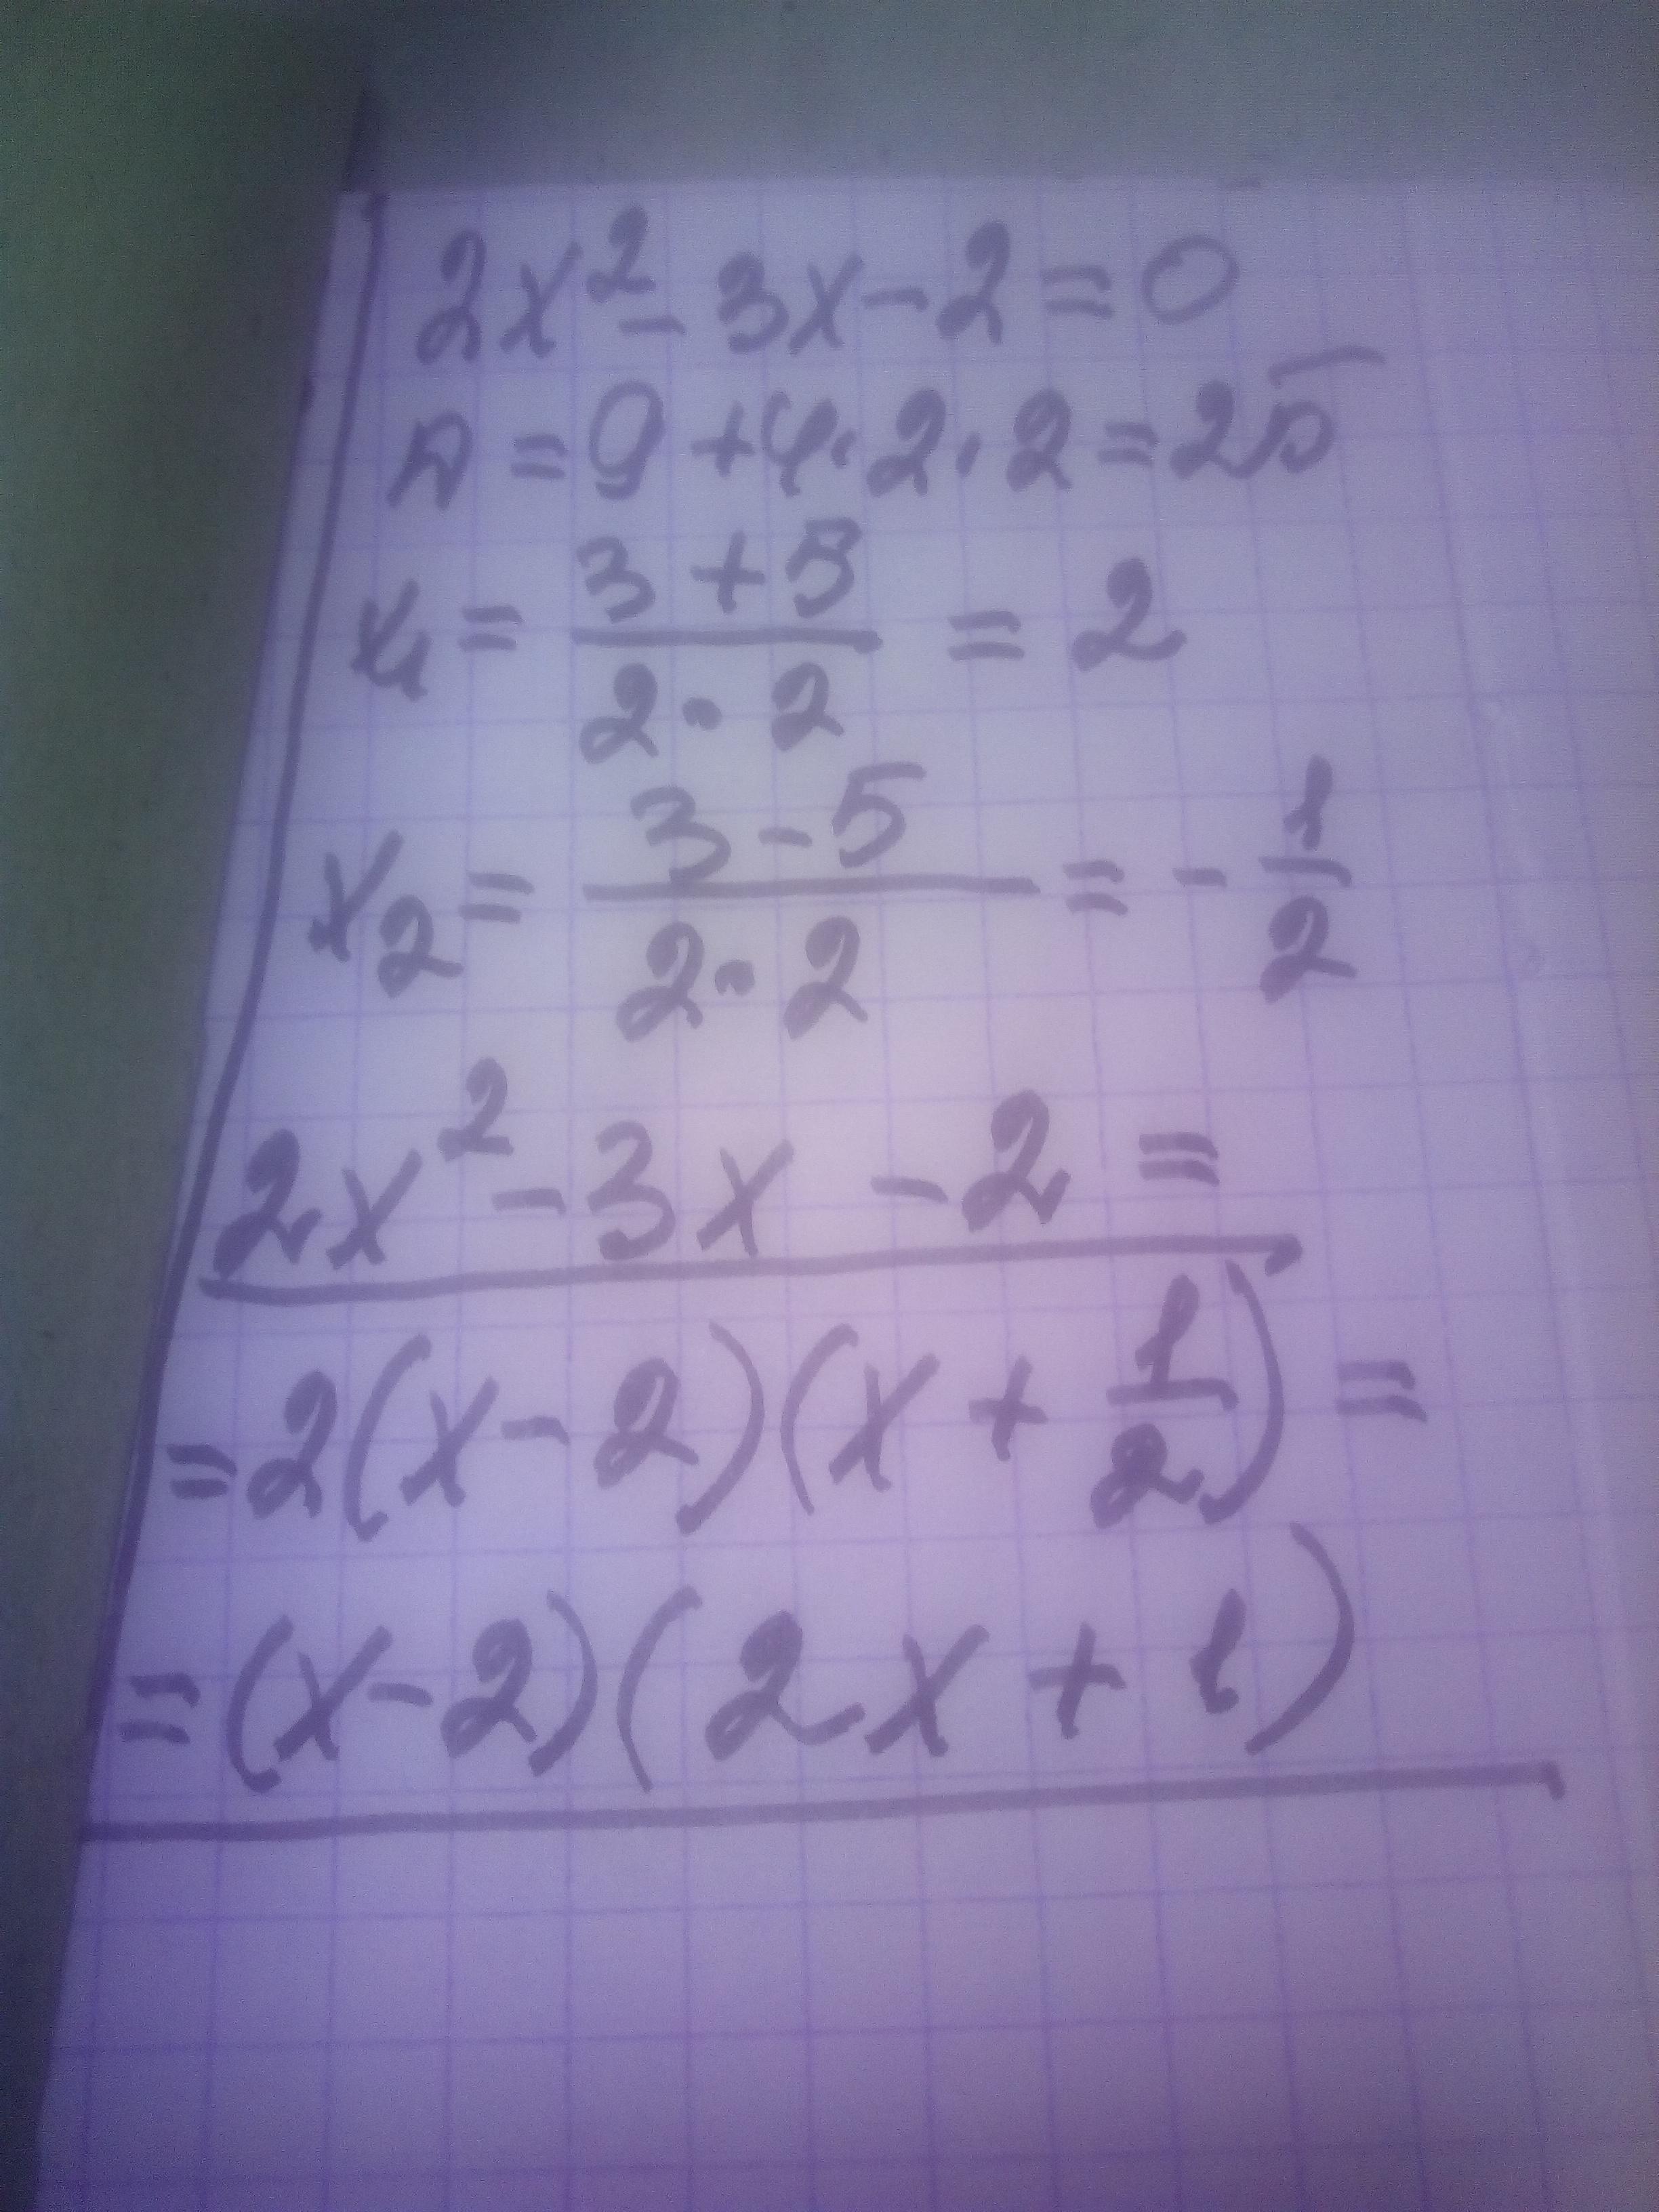 2x² - 3x - 2 = 0
D = 9 + 4·2·2 = 25
x₁ = (3 + 5)/(2·2) = 2
x₂ = (3 - 5)/(2·2) = -1/2
2x² - 3x - 2 =
= 2(x - 2)(x + 1/2) =
= (x - 2)(2x + 1)